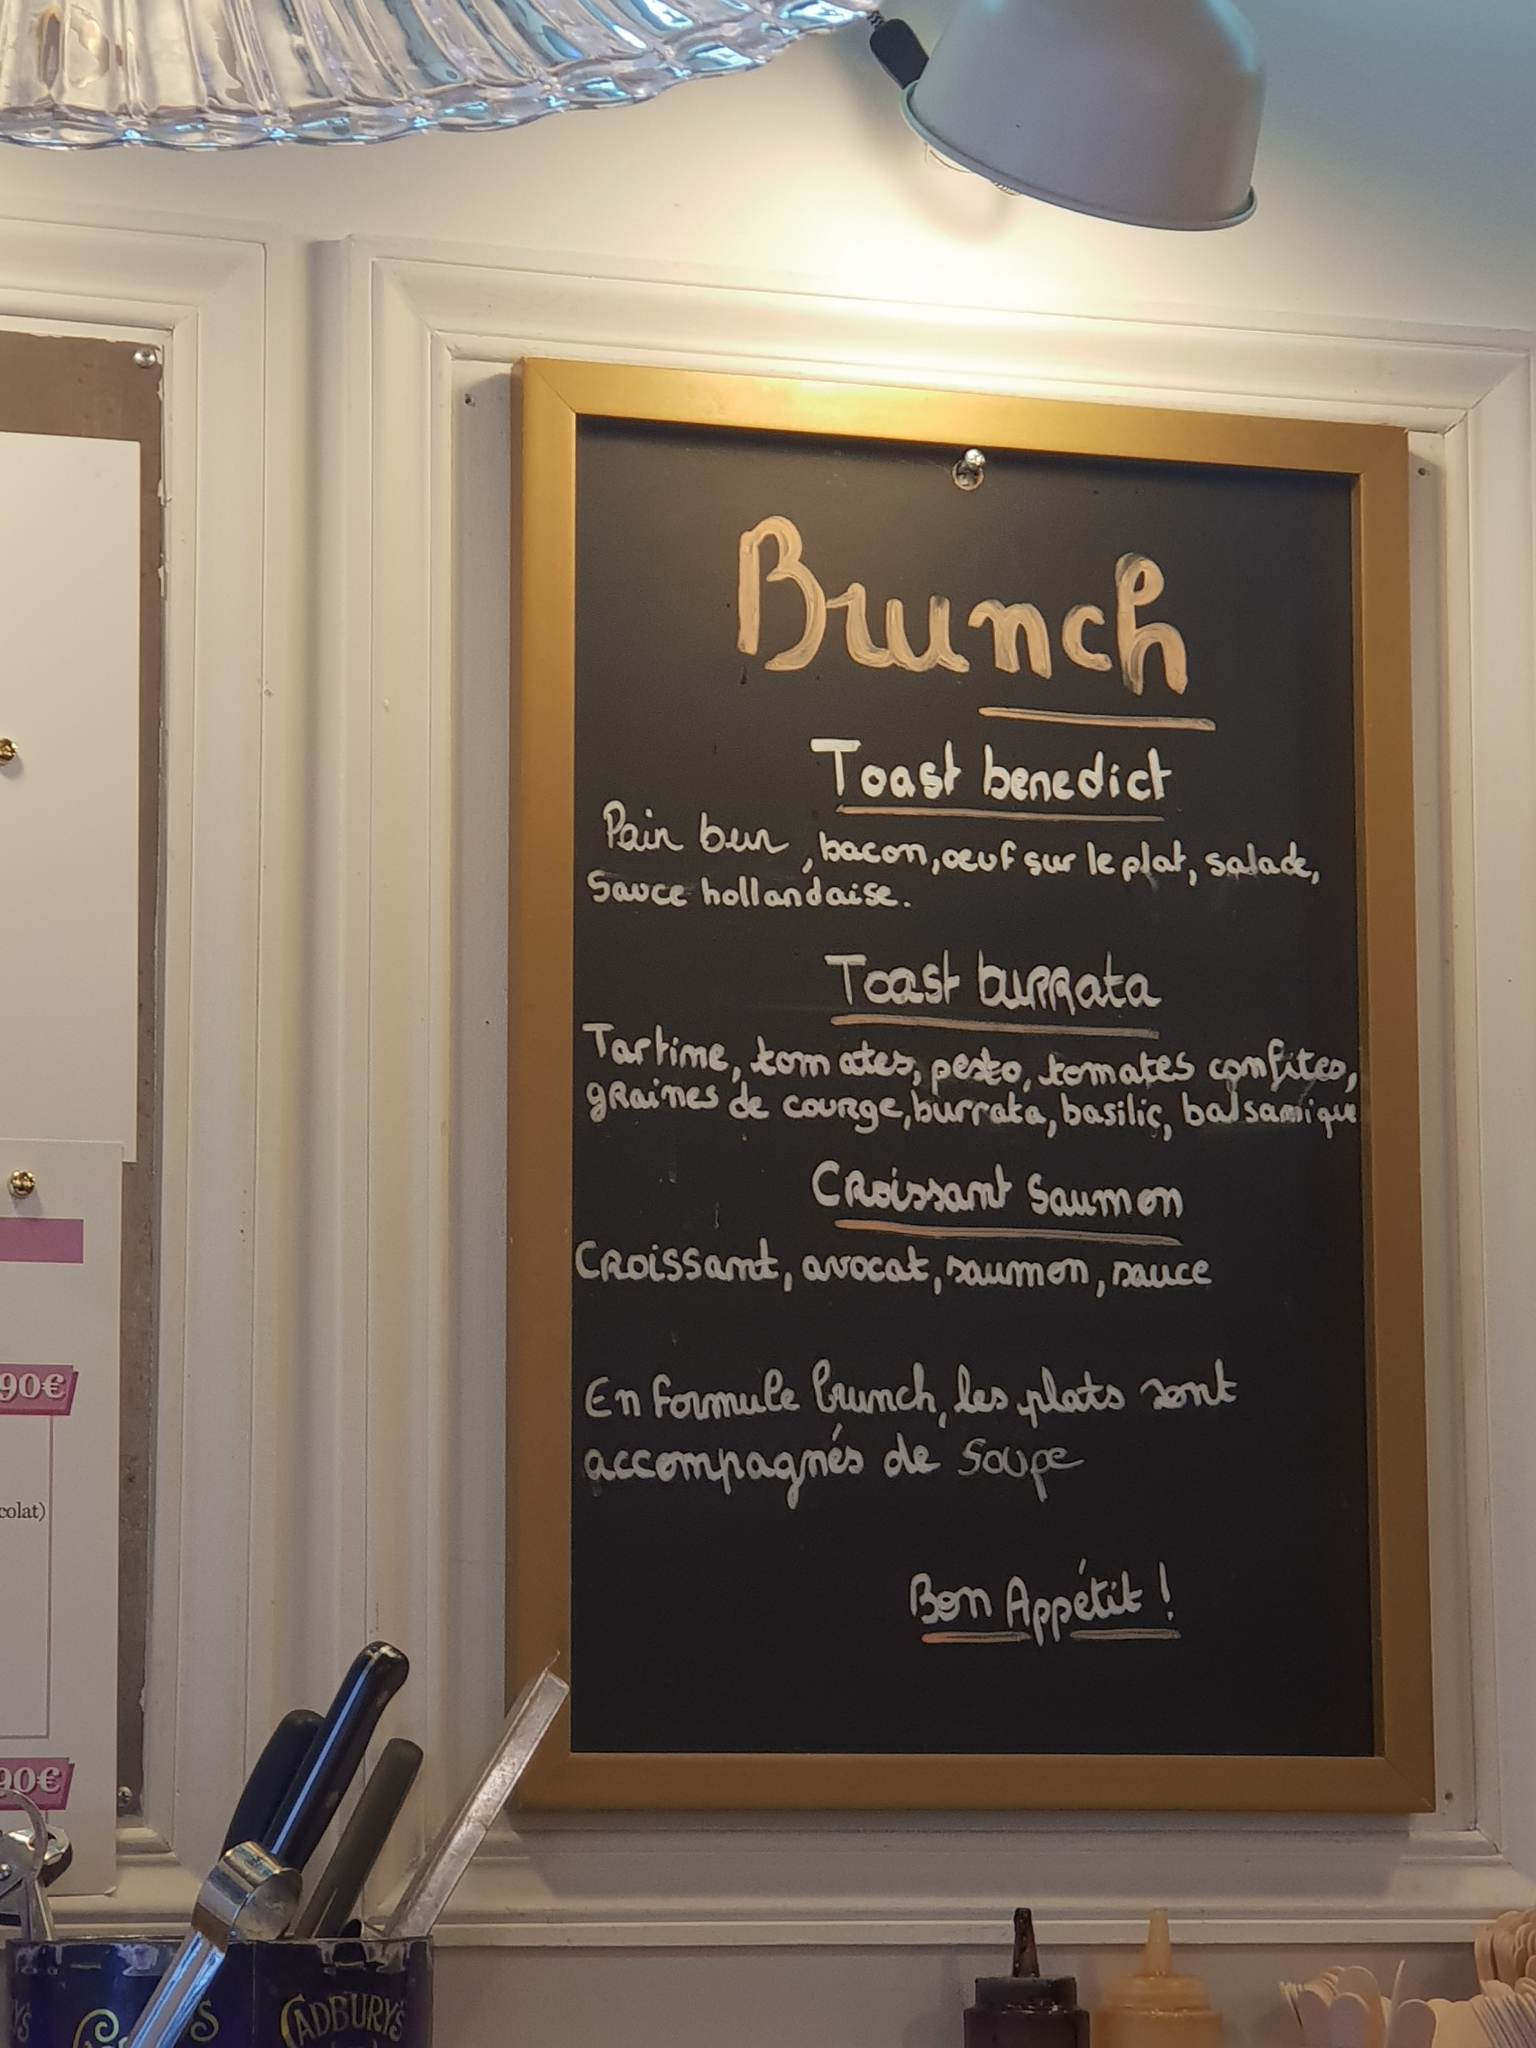 Brunch
Toast benedict
Pain bun, bacon, oeuf sur le plat, salade,
Sauce hollandaise.
Toast burrata
Tartine, tomates, pesto, tomates confites,
graines de courge, burrata, basilic, balsamique
Croissant Saumon
Croissant, avocat, saumon, sauce
En Formule brunch, les plats sont
accompagnés de Soupe
Bon Appétit !
90€
colat)
90€
CADBURY'S